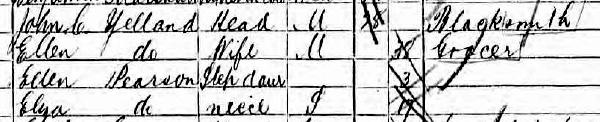 John C Yelland Head M 38 Blacksmith
Ellen do Wife M 38 Grocer
Ellen Pearson Step daur 3
Eliza do niece